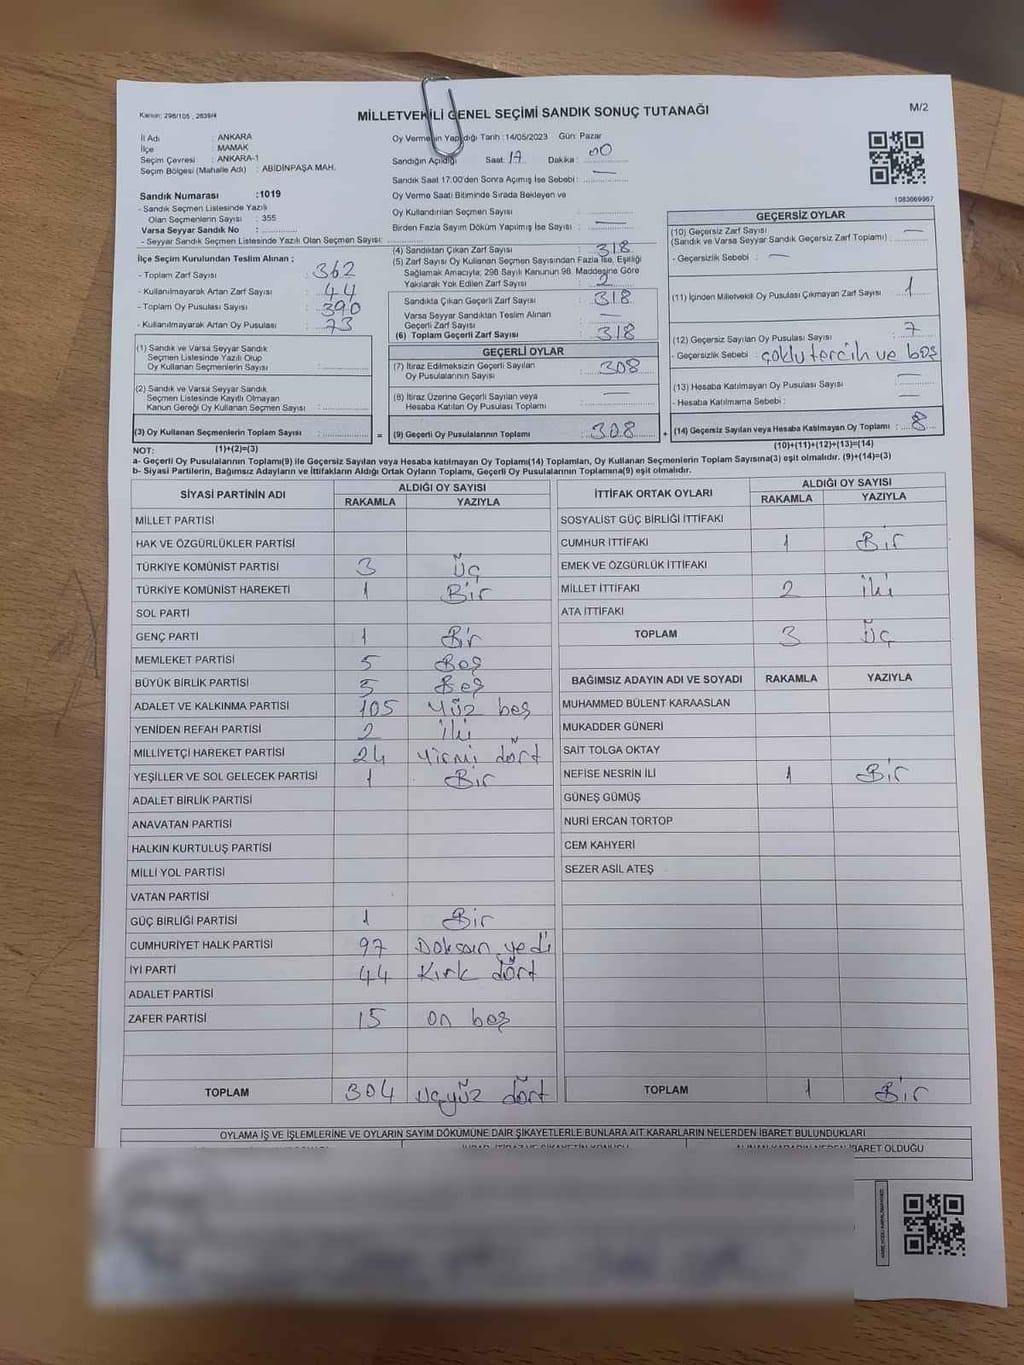 Kanun: 298/105 , 2839/4
MİLLETVEKİLİ GENEL SEÇİMİ SANDIK SONUÇ TUTANAĞI
M/2
İl Adı : ANKARA
İlçe : MAMAK
Seçim Çevresi : ANKARA-1
Seçim Bölgesi (Mahalle Adı) : ABİDİNPAŞA MAH.
Sandık Numarası :1019
- Sandık Seçmen Listesinde Yazılı
Olan Seçmenlerin Sayısı : 355
Varsa Seyyar Sandık No :
- Seyyar Sandık Seçmen Listesinde Yazılı Olan Seçmen Sayısı:
İlçe Seçim Kurulundan Teslim Alınan ;
- Toplam Zarf Sayısı : 362
- Kullanılmayarak Artan Zarf Sayısı : 44
- Toplam Oy Pusulası Sayısı : 390
- Kullanılmayarak Artan Oy Pusulası : 73
(1) Sandık ve Varsa Seyyar Sandık
Seçmen Listesinde Yazılı Olup
Oy Kullanan Seçmenlerin Sayısı :
(2) Sandık ve Varsa Seyyar Sandık
Seçmen Listesinde Kayıtlı Olmayan
Kanun Gereği Oy Kullanan Seçmen Sayısı :
(3) Oy Kullanan Seçmenlerin Toplam Sayısı :
Oy Vermenin Yapıldığı Tarih : 14/05/2023 Gün: Pazar
Sandığın Açıldığı Saat: 17 Dakika : 00
Sandık Saat 17.00'den Sonra Açımış İse Sebebi : —
Oy Verme Saati Bitiminde Sırada Bekleyen ve
Oy Kullandırılan Seçmen Sayısı :
Birden Fazla Sayım Döküm Yapılmış İse Sayısı : —
(4) Sandıktan Çıkan Zarf Sayısı : 318
(5) Zarf Sayısı Oy Kullanan Seçmen Sayısından Fazla İse, Eşitliği
Sağlamak Amacıyla; 298 Sayılı Kanunun 98. Maddesine Göre
Yakılarak Yok Edilen Zarf Sayısı :
Sandıkta Çıkan Geçerli Zarf Sayısı : 318
Varsa Seyyar Sandıktan Teslim Alınan
Geçerli Zarf Sayısı : —
(6) Toplam Geçerli Zarf Sayısı : 318
GEÇERLİ OYLAR
(7) İtiraz Edilmeksizin Geçerli Sayılan
Oy Pusulalarının Sayısı : 308
(8) İtiraz Üzerine Geçerli Sayılan veya
Hesaba Katılan Oy Pusulası Toplamı : —
= (9) Geçerli Oy Pusulalarının Toplamı : 308 +
1083669967
GEÇERSİZ OYLAR
(10) Geçersiz Zarf Sayısı : —
(Sandık ve Varsa Seyyar Sandık Geçersiz Zarf Toplamı)
- Geçersizlik Sebebi : —
(11) İçinden Milletvekili Oy Pusulası Çıkmayan Zarf Sayısı : 1
(12) Geçersiz Sayılan Oy Pusulası Sayısı : 7
- Geçersizlik Sebebi : çoklu tercih ve boş
(13) Hesaba Katılmayan Oy Pusulası Sayısı : —
- Hesaba Katılmama Sebebi : —
(14) Geçersiz Sayılan veya Hesaba Katılmayan Oy Toplamı : 8
NOT: (1)+(2)=(3) (10)+(11)+(12)+(13)=(14)
a- Geçerli Oy Pusulalarının Toplamı(9) ile Geçersiz Sayılan veya Hesaba katılmayan Oy Toplamı(14) Toplamları, Oy Kullanan Seçmenlerin Toplam Sayısına(3) eşit olmalıdır. (9)+(14)=(3)
b- Siyasi Partilerin, Bağımsız Adayların ve İttifakların Aldığı Ortak Oyların Toplamı, Geçerli Oy Pusulalarının Toplamına(9) eşit olmalıdır.
SİYASİ PARTİNİN ADI ALDIĞI OY SAYISI
RAKAMLA YAZIYLA
MİLLET PARTİSİ
HAK VE ÖZGÜRLÜKLER PARTİSİ
TÜRKİYE KOMÜNİST PARTİSİ 3 Üç
TÜRKİYE KOMÜNİST HAREKETİ 1 Bir
SOL PARTİ
GENÇ PARTİ 1 Bir
MEMLEKET PARTİSİ 5 Beş
BÜYÜK BİRLİK PARTİSİ 5 Beş
ADALET VE KALKINMA PARTİSİ 105 Yüz beş
YENİDEN REFAH PARTİSİ 2 İki
MİLLİYETÇİ HAREKET PARTİSİ 24 Yirmi dört
YEŞİLLER VE SOL GELECEK PARTİSİ 1 Bir
ADALET BİRLİK PARTİSİ
ANAVATAN PARTİSİ
HALKIN KURTULUŞ PARTİSİ
MİLLİ YOL PARTİSİ
VATAN PARTİSİ
GÜÇ BİRLİĞİ PARTİSİ 1 Bir
CUMHURİYET HALK PARTİSİ 97 Doksan yedi
İYİ PARTİ 44 Kırk dört
ADALET PARTİSİ
ZAFER PARTİSİ 15 on beş
TOPLAM 304 Üçyüz dört
İTTİFAK ORTAK OYLARI ALDIĞI OY SAYISI
RAKAMLA YAZIYLA
SOSYALİST GÜÇ BİRLİĞİ İTTİFAKI
CUMHUR İTTİFAKI 1 Bir
EMEK VE ÖZGÜRLÜK İTTİFAKI
MİLLET İTTİFAKI 2 İki
ATA İTTİFAKI
TOPLAM 3 Üç
BAĞIMSIZ ADAYIN ADI VE SOYADI RAKAMLA YAZIYLA
MUHAMMED BÜLENT KARAASLAN
MUKADDER GÜNERİ
SAİT TOLGA OKTAY
NEFİSE NESRİN İLİ 1 Bir
GÜNEŞ GÜMÜŞ
NURİ ERCAN TORTOP
CEM KAHYERİ
SEZER ASİL ATEŞ
TOPLAM 1 Bir
OYLAMA İŞ VE İŞLEMLERİNE VE OYLARIN SAYIM DÖKÜMÜNE DAİR ŞİKAYETLERLE BUNLARA AİT KARARLARIN NELERDEN İBARET BULUNDUKLARI
İBARET OLDUĞU